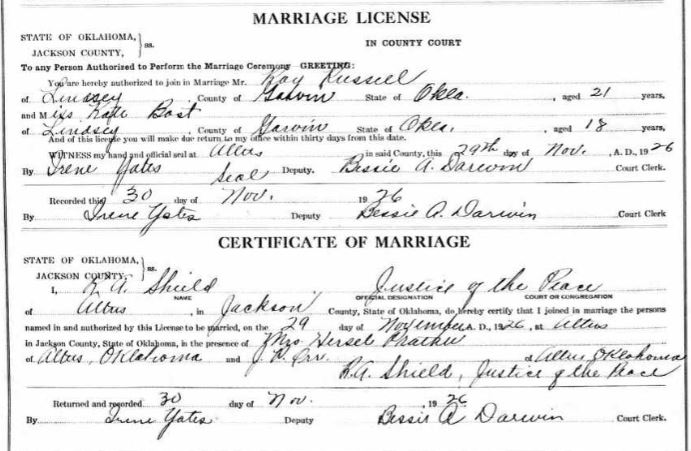 MARRIAGE LICENSE
STATE OF OKLAHOMA,
JACKSON COUNTY, } ss. IN COUNTY COURT
To any Person Authorized to Perform the Marriage Ceremony GREETING:
You are hereby authorized to join in Marriage Mr. Ray Russell
of Lindsey, County of Garvin State of Okla., aged 21 years,
and Miss Bost
of Lindsey, County of Garvin State of Okla., aged 18 years.
And of this license you will make due return to my office within thirty days from this date.
WITNESS my hand and official seal at Altus in said County, this 29th day of Nov. A. D., 1926
By Irene Yates Deputy. Bessie A. Darwin Court Clerk.
Seal
Recorded this 30 day of Nov. 1926
By Irene Yates Deputy Bessie A. Darwin Court Clerk
CERTIFICATE OF MARRIAGE
STATE OF OKLAHOMA,
JACKSON COUNTY, } ss.
I, R. A. Shield Justice of the Peace
NAME OFFICIAL DESIGNATION COURT OR CONGREGATION
of Altus, in Jackson County, State of Oklahoma, do hereby certify that I joined in marriage the persons
named in and authorized by this License to be married, on the 29 day of November A. D., 1926, at Altus
in Jackson County, State of Oklahoma, in the presence of Mrs Hersel Prather
of Altus, Oklahoma and of Altus, Oklahoma
R. A. Shield, Justice of the Peace
Returned and recorded 30 day of Nov. , 1926
By Irene Yates Deputy Bessie A Darwin Court Clerk.